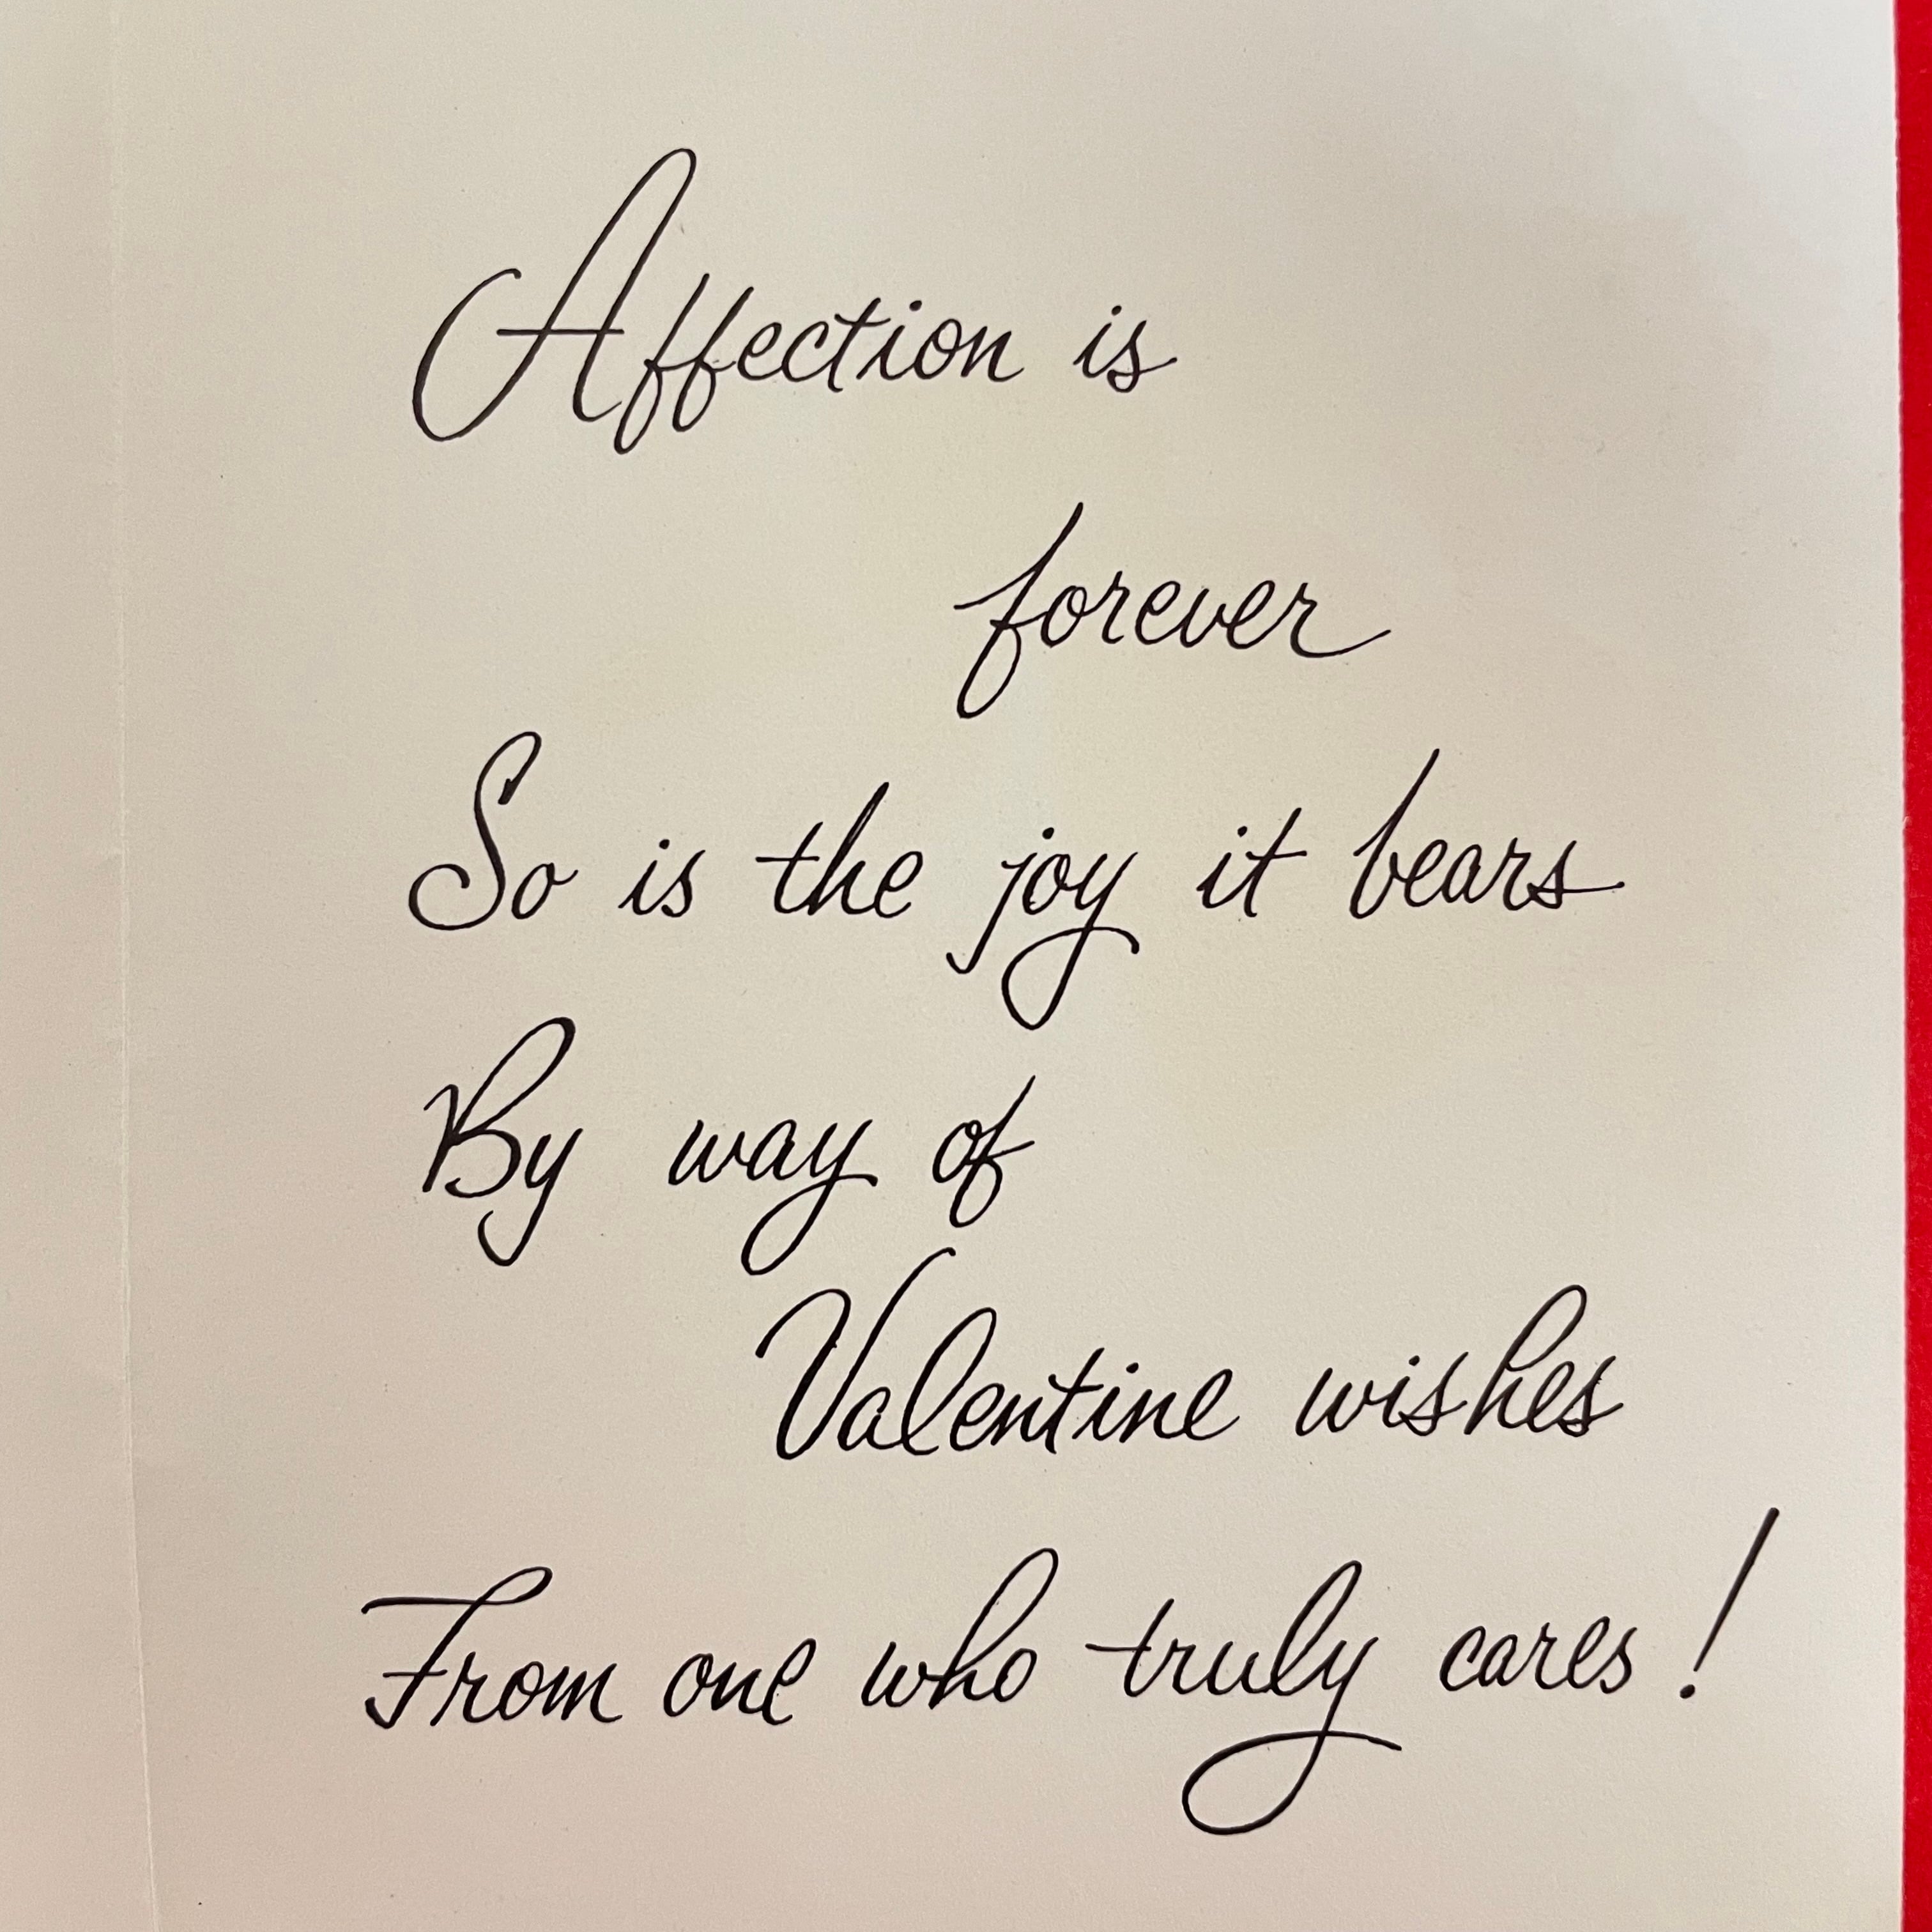 Affection is
forever
So is the joy it bears
By way of
Valentine wishes
From one who truly cares!